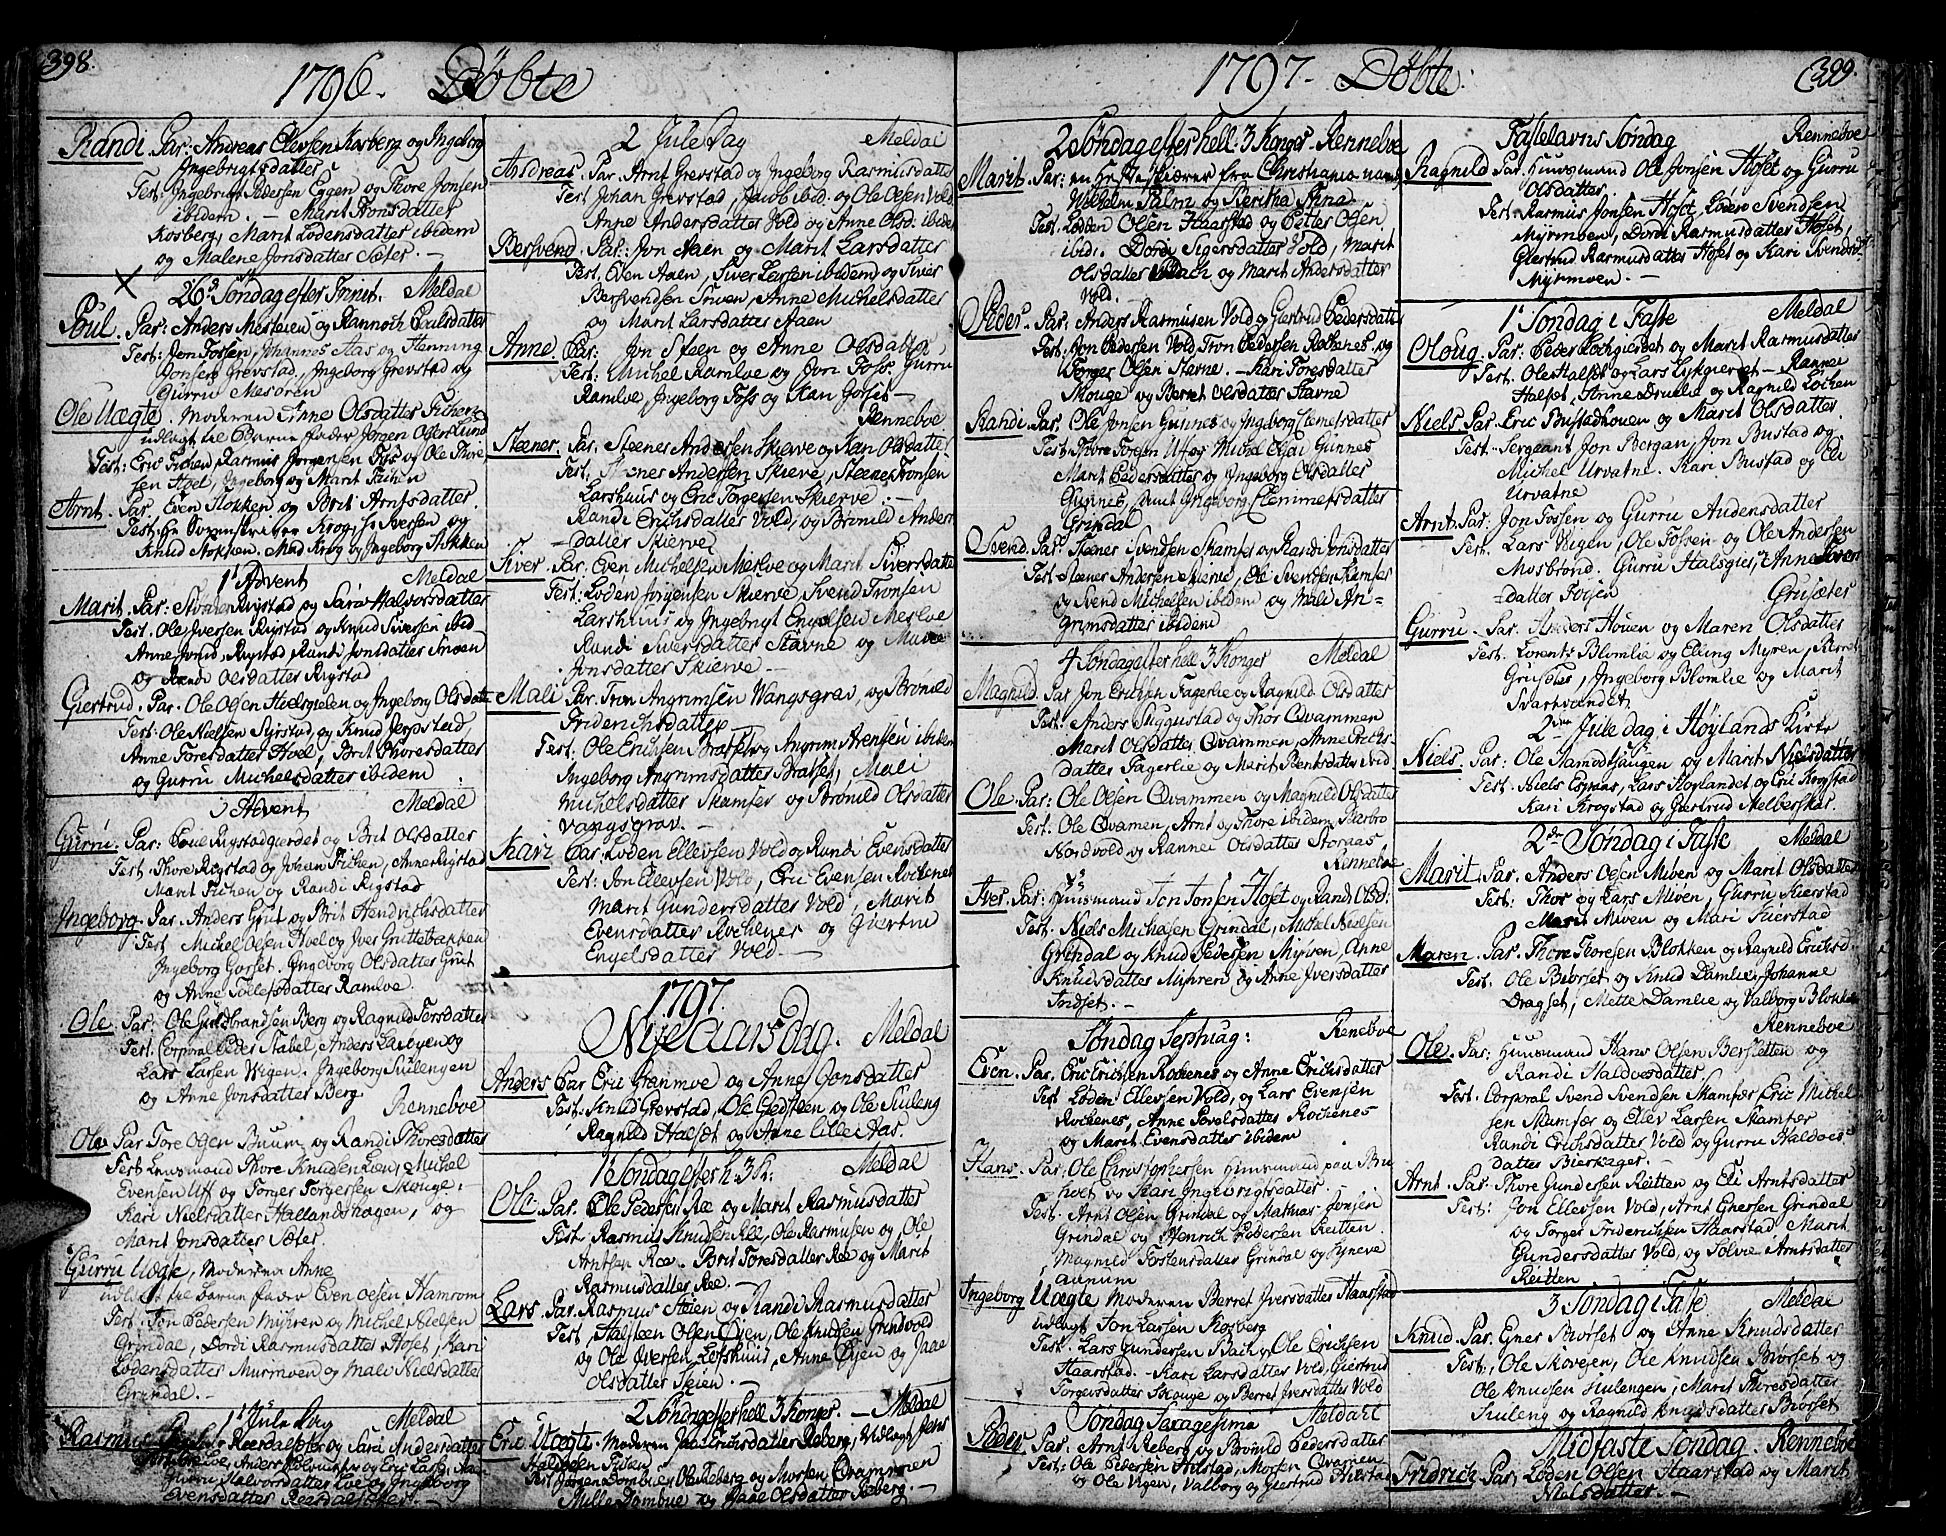 398.
1796. Döbte
Randi. Par: Andreas Olevsen Kosberg og Ingeborg
Ingebrigtsdatter
Test: Ingebrigt Pedersen Eggen og Thore Jonsen
ibidem. — Marit Tronsdatter
Kosberg, Marit Lodensdatter ibidem
og Malene Jonsdatter Sæter. —
26d Söndag efter Trinit. Meldal
Poul. Par: Anders Mesøien og Rannoch Poulsdatter
Test: Jon Fossen, Johannes Aas og Henning
Jonsen Grevstad, Ingeborg Grevstad og
Gurru Mesören
Ole Uægte. Moderen Anne Olsdatter Fichen
udlagt til Barne fader Jörgen Olsen Lund
Test: Eric Fichen, Rasmus Jorgensen Foss og Ole Thore
sen Hoel, Ingeborg og Marit Fichen
Arnt Par. Even Stokken og Brit Arntsdatter
Knud Stokken. Mad Krog og Ingeborg Stokken
1 Advent Meldal
Marit. Par: Rigstad og Sara Halvorsdatter
Test. Ole Iversen Rigstad og Knud Siversen ibid
og Randi Olsdatter Rigstad
Giertrud. Par. Ole Olsen og Ingeborg Olsdatter
Test: Ole Nielsen Syrstad, og Knud Jerpstad
Anne Toresdatter Hoel, Brit Thoresdatter
og Gurru Michelsdatter ibidem
3 Advent Meldal
Gurru. Par: Poul Rigstadgierdet og Brit Olsdatter
Test. Thore Rigstad og Johan Fichen, Anne Rigstad
Marit Fichen og Randi Rigstad
Ingeborg. Par. Anders Grut og Brit Hendrichsdatter
Test Michel Olsen Hoel og Iver Gruttebakken
Ingeborg Gorset. Ingeborg Olsdatter Grut
og Anne Tollefsdatter Ramlve.
Ole Par: Ole Guldbrandsen Berg og Ragnild Torsdatter
Test. Corporal Peder Stabel, Anders Lavøyen og
Lars Larsen Wigen. Ingeborg Siulengen
og Anne Jonsdatter Berg
Renneboe
Ole Par Tore Olsen Buum og Randi Thoresdatter
Test Huusmand Thore Knudsen Leen, Michel
Evensen Uff og Torger Torgersen Skouge.
Kari Nielsdatter Hallandshagen, og
Marit Jonsdatter Sæter.
Gurru Uægte, Moderen Anne
udlagt til barne fader Even Olsen Hamrom
Test. Jon Pedersen Myhren og Michel Nielsen
Grindal, Dordi Rasmusdatter Hoset, Kari
Lodensdatter Myrmoen og Mali Nielsdatter
Grindal. —
1 Jule Dag Meldal
og Sara Andersdatter
2 Jule Dag Meldal
Andreas. Par. Arnt Grevstad og Ingeborg Rasmusdatter
Test Johan Grevstad, Jacob ibid. og Ole Olsen Vold
Anne Andersdatter Vold og Anne Olsd. ibidem
Bersvend. Par: Jon Aaen og Marit Larsdatter
Test. Even Aaen, Siver Larsen ibidem og Siver
Bersvendsen Snoen, Anne Michelsdatter
og Marit Larsdatter Aaen
Anne Par: Jon Steen og Anne Olsdatter
Test: Michel Ramlve og Jon Foss. Gurru
Ramlve, Ingeborg Foss og Kari Gorset. —
Renneboe
Steener. Par. Steener Andersen Skierve og Kari Olsdatter
Test. Steener Andersen Skierve, Steener Tronsen
Larshuus og Eric Torgersen Skierve. —
Randi Erichsdatter Vold, og Bronild Anders
datter Skierve
Siver Par. Even Michelsen Meslve og Marit Siversdatter
Test: Loden Jorgensen Skierve, Svend Tronsen
Larshuus og Ingebrigt Engelsen Meslve
Randi Siversdatter Stavne og Marit
Jonsdatter Skierve. —
Mali Par. Tron Angrimsen Wangsgrav, og Bronild
Friderichsdatter
Test. Ole Erichsen Brasset og Angrim Arentsen ibidem
Ingeborg Angrimsdatter Brasset, Mali
Michelsdatter Skamfer og Bronild Olsdatter
Vangsgrav. —
Kari Par. Loden Ellevsen Vold og Randi Evensdatter
Test: Jon Ellevsen Vold, Eric Evensen Rockenes
Marit Gundersdatter Vold, Marit
Evensdatter Rockenes og Giertru
Engelsdatter Vold —
1797.
Nye Aarsdag. Meldal
Anders Par Eric Granmoe og Anne Jonsdatter
Test: Knud Grevstad, Ole Giedtsen og Ole Siuleng
Ragnild Halset og Anne Lille Aas.
1 Söndag efter h: 3 K: Meldal
Ole. Par. Ole Pedersen Ree og Marit Rasmusdatter
Test. Rasmus Knudsen Ree, Ole Rasmusen og Ole
Arntsen Ree. Brit Toresdatter Ree og Marit
Rasmusdatter Ree. —
Lars Par. Rasmus Skien og Randi Rasmusdatter
Test, Halsteen Olsen Öyen, Ole Knudsen Grindvold
og Ole Iversen Lefshuus, Anne Öyen og
Olsdatter Skien. —
2 Söndag efter hell 3 Konger. — Meldal
Eric Uægte. Moderen Erichsdatter Reberg, Udlagt Jens
Halsteen Fichen
og Morten Qvammen
1797. Döbte.
399.
2 Söndag efter hell: 3 Konger. Renneboe
Marit. Par: en Heste fra Christiania navnl
Wilhelm Palm og Beritha Anna
Test. Lodden Olsen Haarstad og Petter Olsen
ibid. Dordi Sigersdatter Vold, Marit
Olsdatter Bach og Marit Andersdatter
Vold.
Peder. Par: Anders Rasmusen Vold og Giertrud Pedersdatter
Test, Jon Pedersen Vold, Tron Pedersen Rockenes, og
Torger Olsen Stavne. — Kari Toresdatter
Skouge og Berret Olsdatter Stavne
Randi Par. Ole Jonsen Gunnes og Ingeborg Clemetsdatter
Marit Pedersdatter og Ingeborg Olsdatter
Gunnes, samt Ingeborg Clemmetsdatter
Grindal
Svend. Par. Steener Svendsen Skamfer og Randi Jonsdatter
Test. Steener Andersen Skierve, Ole Svendsen Skamfer
og Svend Michelsen ibidem og Mali An-
grimsdatter ibidem
4 Söndag efter hell 3 Konger Meldal
Magnild Par Jon Erichsen Fagerlie og Ragnild Olsdatter
Test: Anders Siggustad og Thor Qvammen
Marit Olsdatter Qvammen, Anne
datter Fagerlie og Marit Bentsdatter ibid
Ole Par: Ole Olsen Qvammen og Magnild Olsdatter
Test: Ole Qvamen, Arnt og Thore ibidem
Nordvold og Rannei Olsdatter Storaas
Renneboe
Iver. Par: Huusmand Jon Jonsen Hoset og Randi Olsd:
Test: Niels Michelsen Grindal, Michel Nielsen
Grindal og Knud Pedersen Myhren, Anne
Knudsdatter Myhren og Anne Iversdatter
Jndset. —
Söndag Septuag: Reneboe
Even. Par. Eric Erichsen Rockenes og Anne Erichsdatter
Test Loden Ellevsen Vold, og Lars Evensen
Rockenes, Anne Povelsdatter Rockenes
og Marit Evensdatter ibidem
Hans. Par, Ole Christophersen Huusmand paa Bru
hoet og Kari Ingebrigtsdatter. —
Test. Arnt Olsen Grindal og Mathias Jonsen
Grindal og Henrich Pedersen Reitten
Magnild Tostensdatter Grindal og Synneve
Aunum
Ingeborg Uægte Moderen Berret Iversdatter Haarstad
udlagt Jon Larsen Kosberg
Test. Lars Gundersen Bach og Ole Erichsen
Haarstad. Kari Larsdatter Vold, Giertrud
Torgersdatter Skouge og Berret Iversdatter Vold
Söndag Sexagesima Meldahl
Peder Par. Arnt Reberg og Bronild Pedersdatter
Test: Ole Pedersen Hilstad, Morten Qvamen
og Ole Vigen, Valborg og Giertrud Hilstad
Fastelavns Söndag Renneboe
Ragnild Par. Huusmand Ole Jonsen Hoset og Gurru
Olsdatter.
Test. Rasmus Jonsen Hoset, Lodere Svendsen
Myrmoen, Dordi Rasmusdatter Hoset,
Giertrud Rasmusdatter Hoset og Kari Svendsd.
Myrmoen. —
1 Söndag i Faste Meldal
Oloug. Par: Peder Lochgierdet og Marit Rasmusdatter
Test. Ole Halset og Lars Lykgierdet — Rannei
Halset, Anne Druglie og Ragnild Lochen
Niels Par. Eric Bustadhouen og Marit Olsdatter
Test. Sergeant Jon Bergan, Jon Bustad og
Michel Urvatne. Kari Bustad og Eli
Urvatne
Arnt. Par: Jon Fossen og Gurru Andersdatter
Test. Lars Wigen, Ole Fossen og Ole Andersen
Mosbrönd. Gurru Halsgier, Anne
datter Fossen
Grusæter
Gurru. Par. Anders Houen og Maren Olsdatter
Test. Lorentz Blomlie og Elling Myren, Berret
Grusæter, Ingeborg Blomlie og Marit
Svartvandet
2den Jule dag i Höylands Kirke
Niels. Par: Ole Hamodthaugen og Marit Nielsdatter
Test: Niels Espaas, Lars Hoylandet og Eric Krogstad
Kari Krogstad og Giertrud Melberskar.
2den Söndag i Faste Meldal
Marit. Par. Anders Olsen Miven og Marit Olsdatter
Test: Thor og Lars Miven, Gurru Kierstad
Marit Miven og Mari Kierstad
Maren. Par. Thore Thoresen Blokken og Ragnild Erichsd.
Test. Ole Biörset og Knud Damlie, Johanne
Dragset, Mette Damlie og Valborg Blokken
Renneboe
Ole. Par: Huusmand Hans Olsen Bersletten og
Randi Haldvesdatter
Test. Corporal Svend Svendsen Skamfær Eric Michel
sen Skamfær og Ellev Larsen Skamfær
Randi Erichsdatter Vold og Gurru Haldvos
datter Bierkager.
Arnt Par. Thore Gundersen Reitten og Eli Arntsdatter
Test: Jon Ellevsen Vold, Arnt Ghersen Grindal
og Torger Friderichsen Haarstad, Marit
Gundersdatter Vold, og Solvie Arntsdatter
Reitten
3 Söndag i Faste Meldal
Knud Par. Gner Biörset og Anne Knudsdatter
Test. Ole Skovgen, Ole Knudsen Biörset og
Ole Knudsen Siulengen, Marit Thoresdatter
Siuleng og Ragnild Knudsdatter Biörset
Midfaste Söndag. Renneboe
Fridrich Par, Loden Olsen Haarstad og Marit
Nielsdatter. —